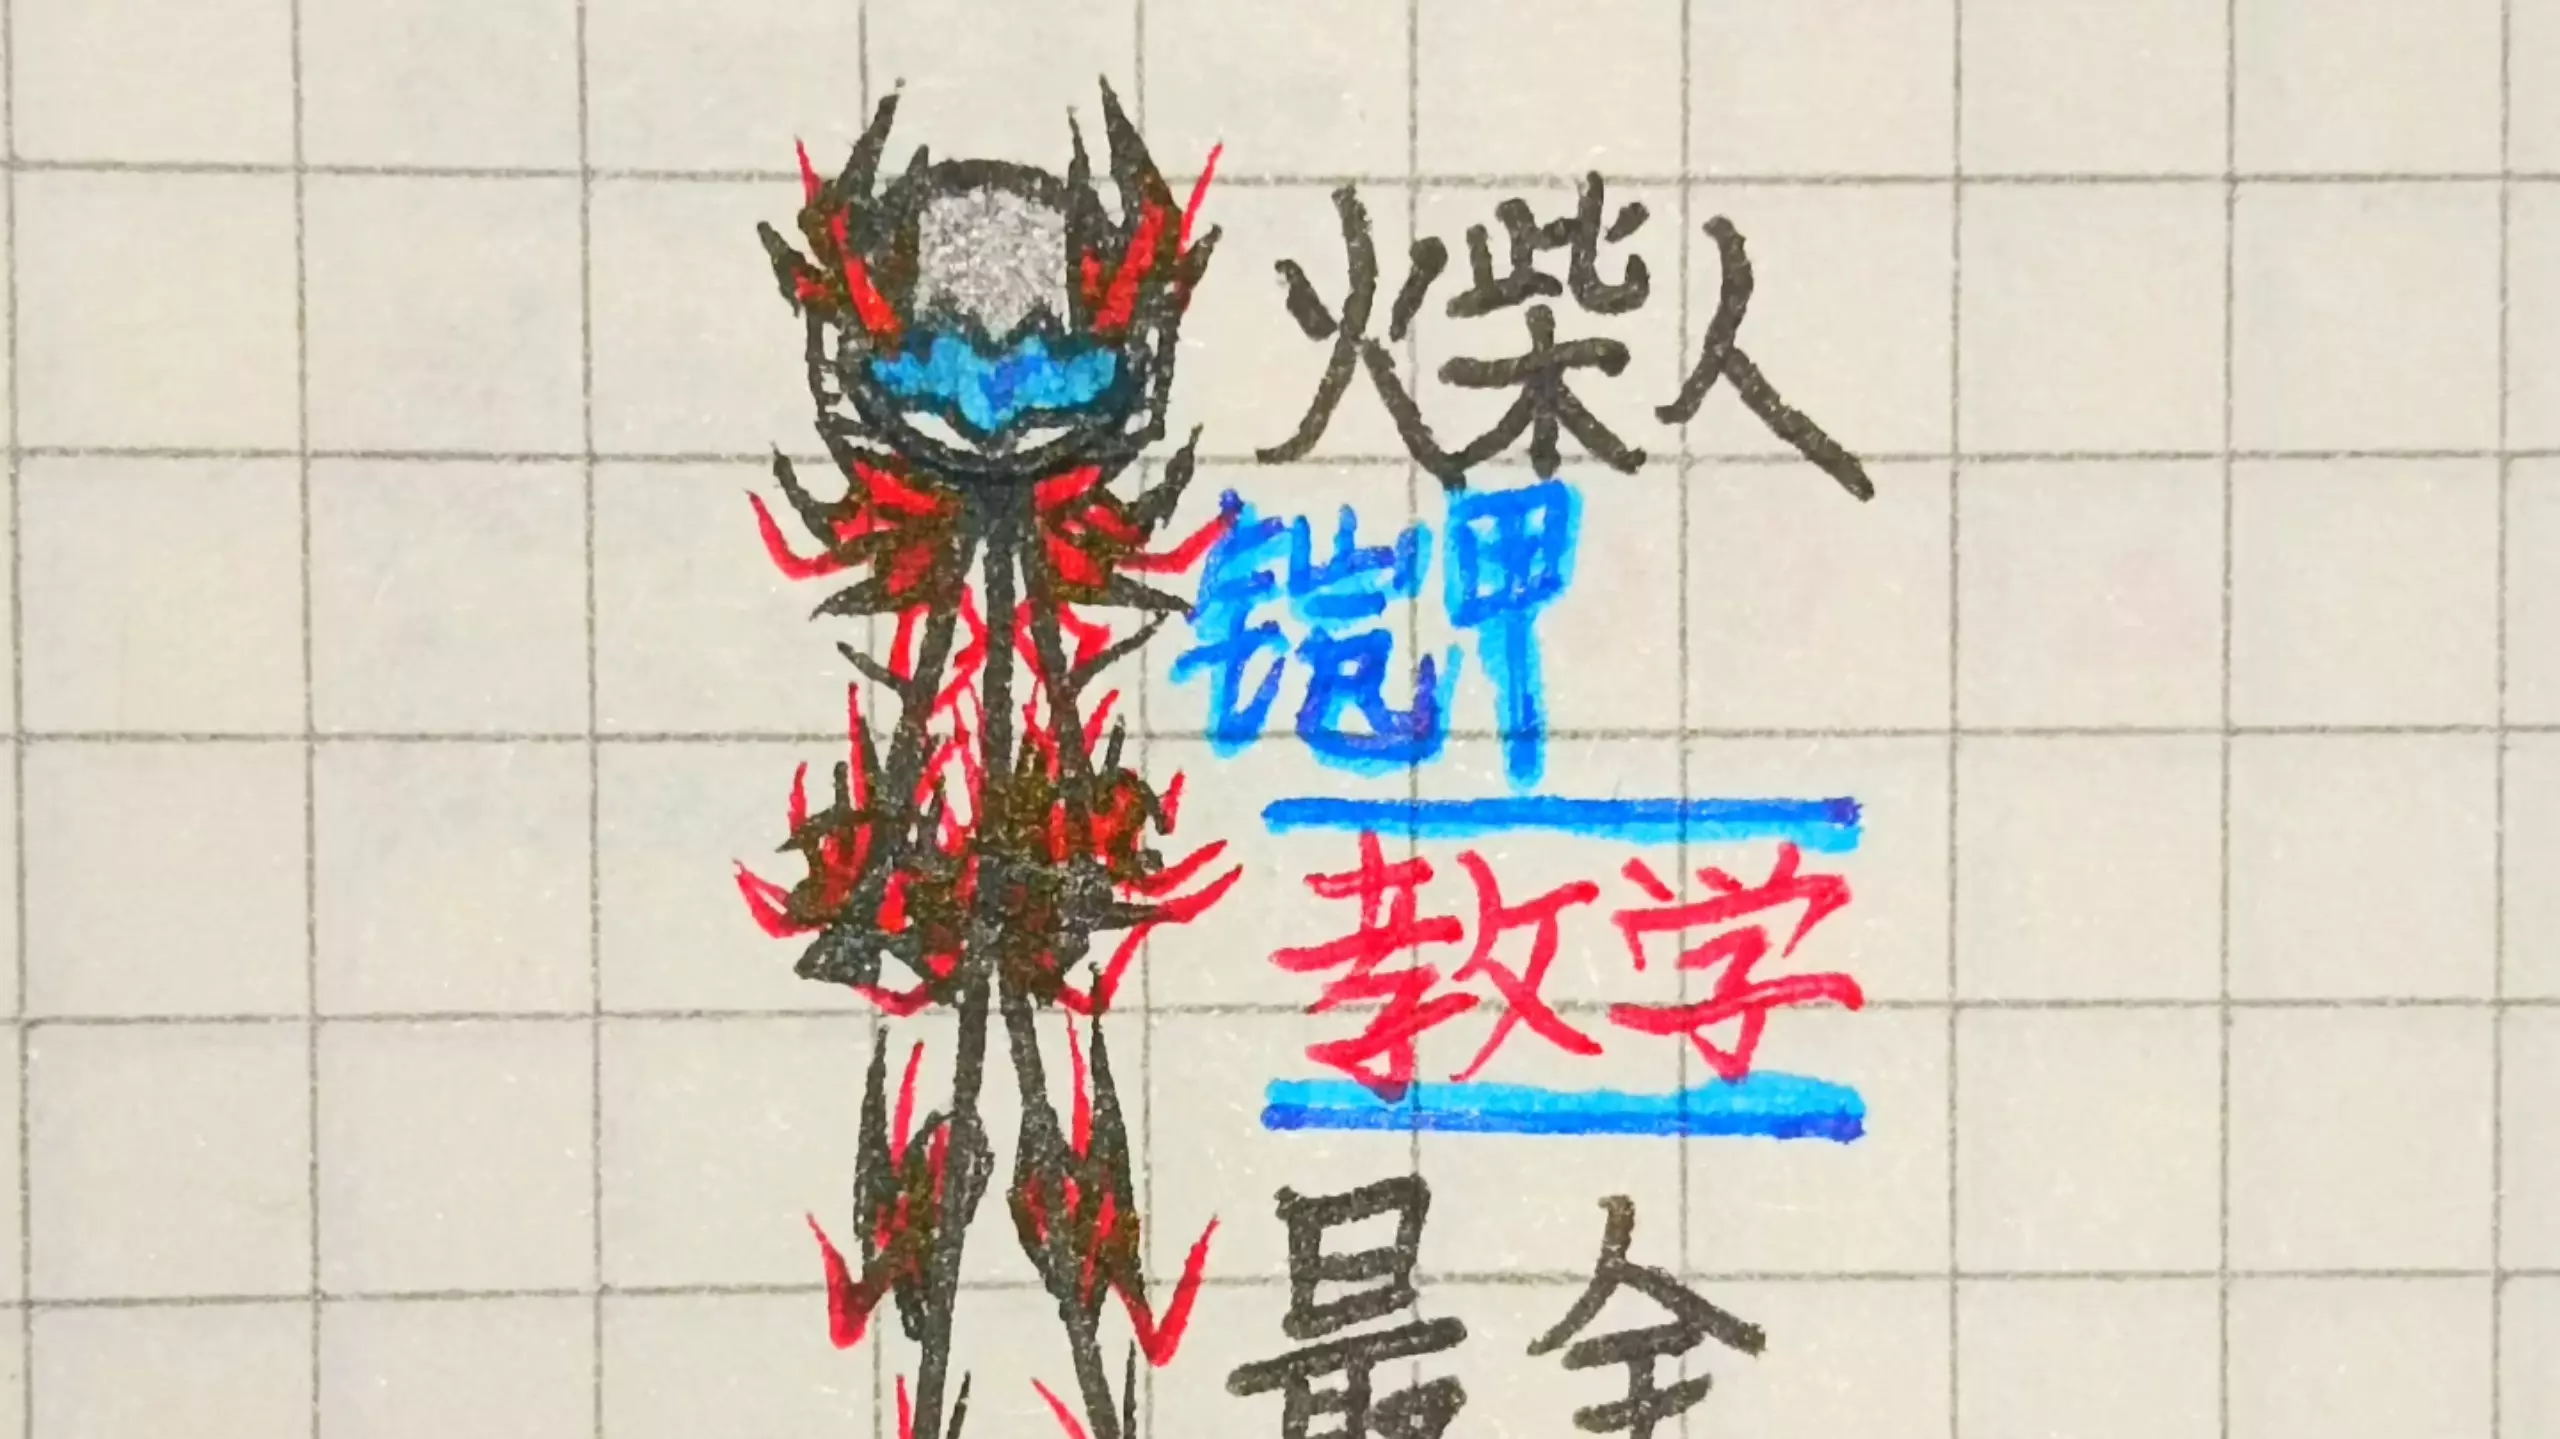 火柴人
铠甲
教学
最全